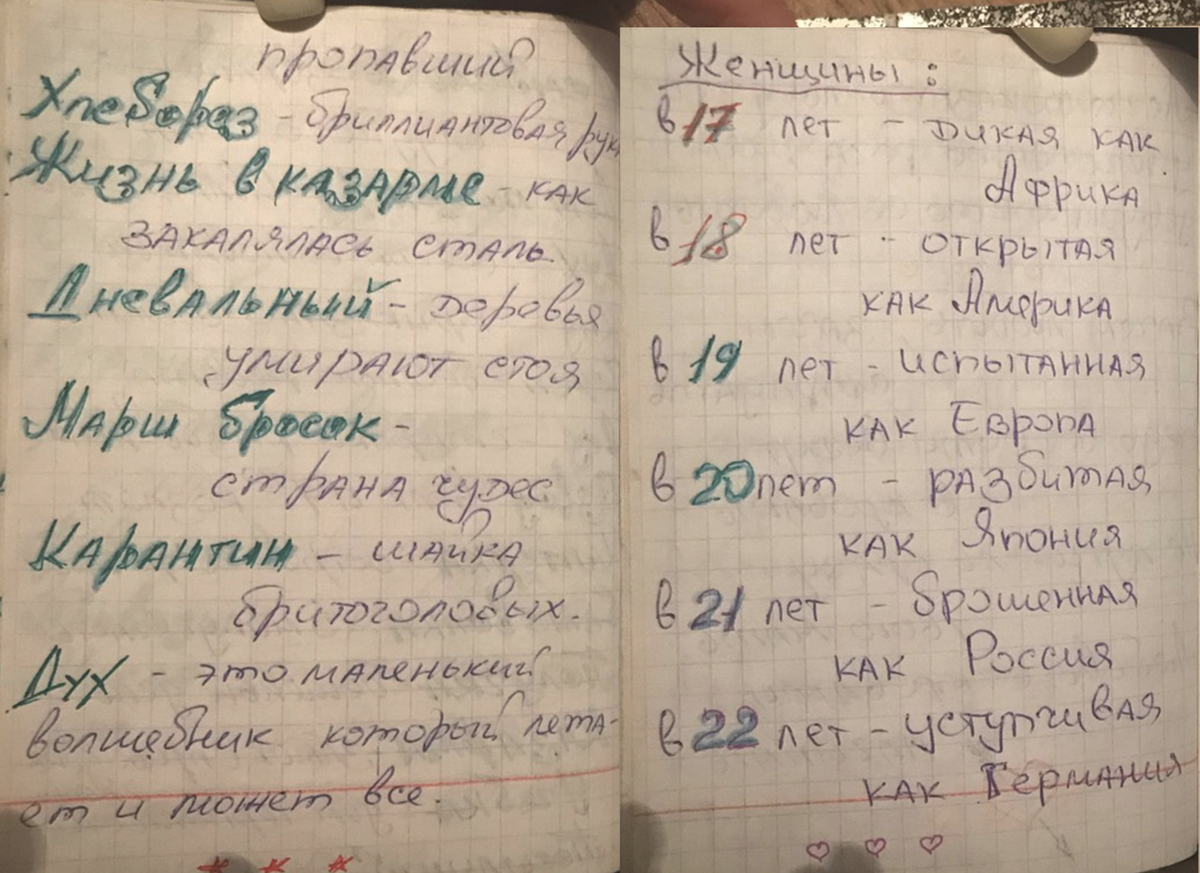 пропавший
Хлеборез - бриллиантовая рука
Жизнь в казарме - как
закалялась сталь.
Дневальный - деревья
умирают стоя
Марш бросок -
страна чудес
Карантин - шайка
бритоголовых.
Дух - это маленький
волшебник который лета-
ет и может все.
Женщины:
в 17 лет - дикая как
Африка
в 18 лет - открытая
как Америка
в 19 лет - испытанная
как Европа
в 20 лет - разбитая
как Япония
в 21 лет - брошенная
как Россия
в 22 лет - уступчивая
как Германия